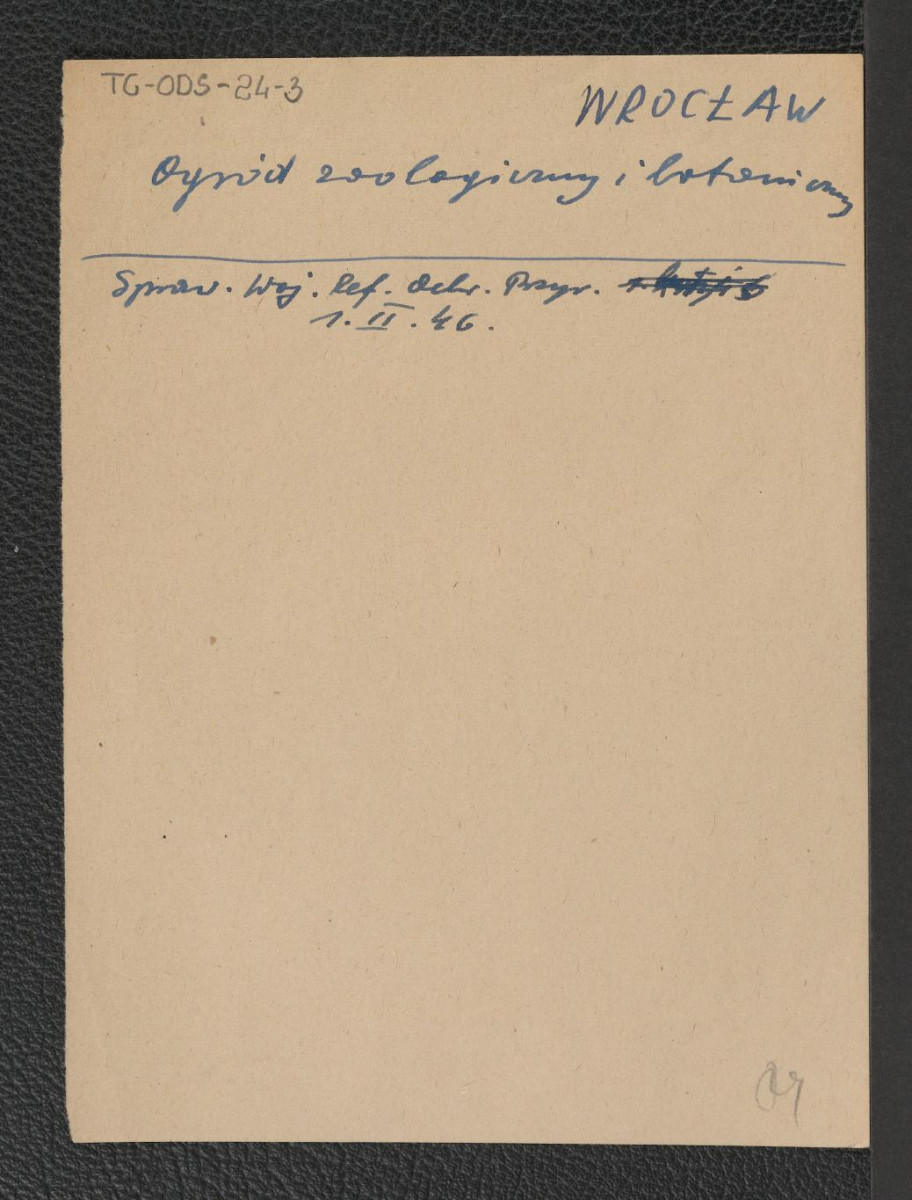 TG-ODS-24-3
WROCŁAW
Ogród zoologiczny i botaniczny
Spraw. Woj. Ref. Ochr. Przyr.
1.II.46.